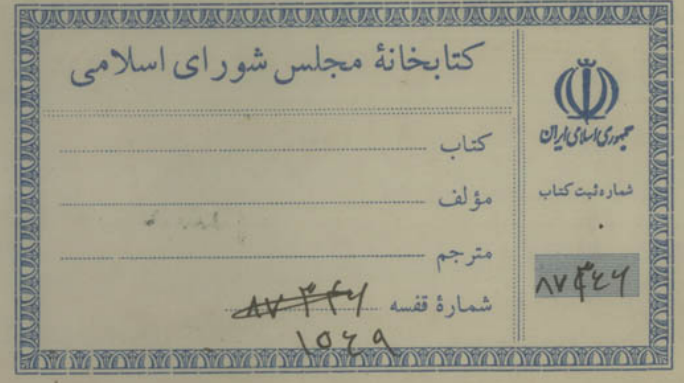 کتابخانهٔ مجلس شورای اسلامی
کتاب
مؤلف
مترجم
شمارهٔ قفسه ۸۷۳۴۶
۱۵۶۹
جمهوری اسلامی ایران
شماره ثبت کتاب
۸۷۳۴۶